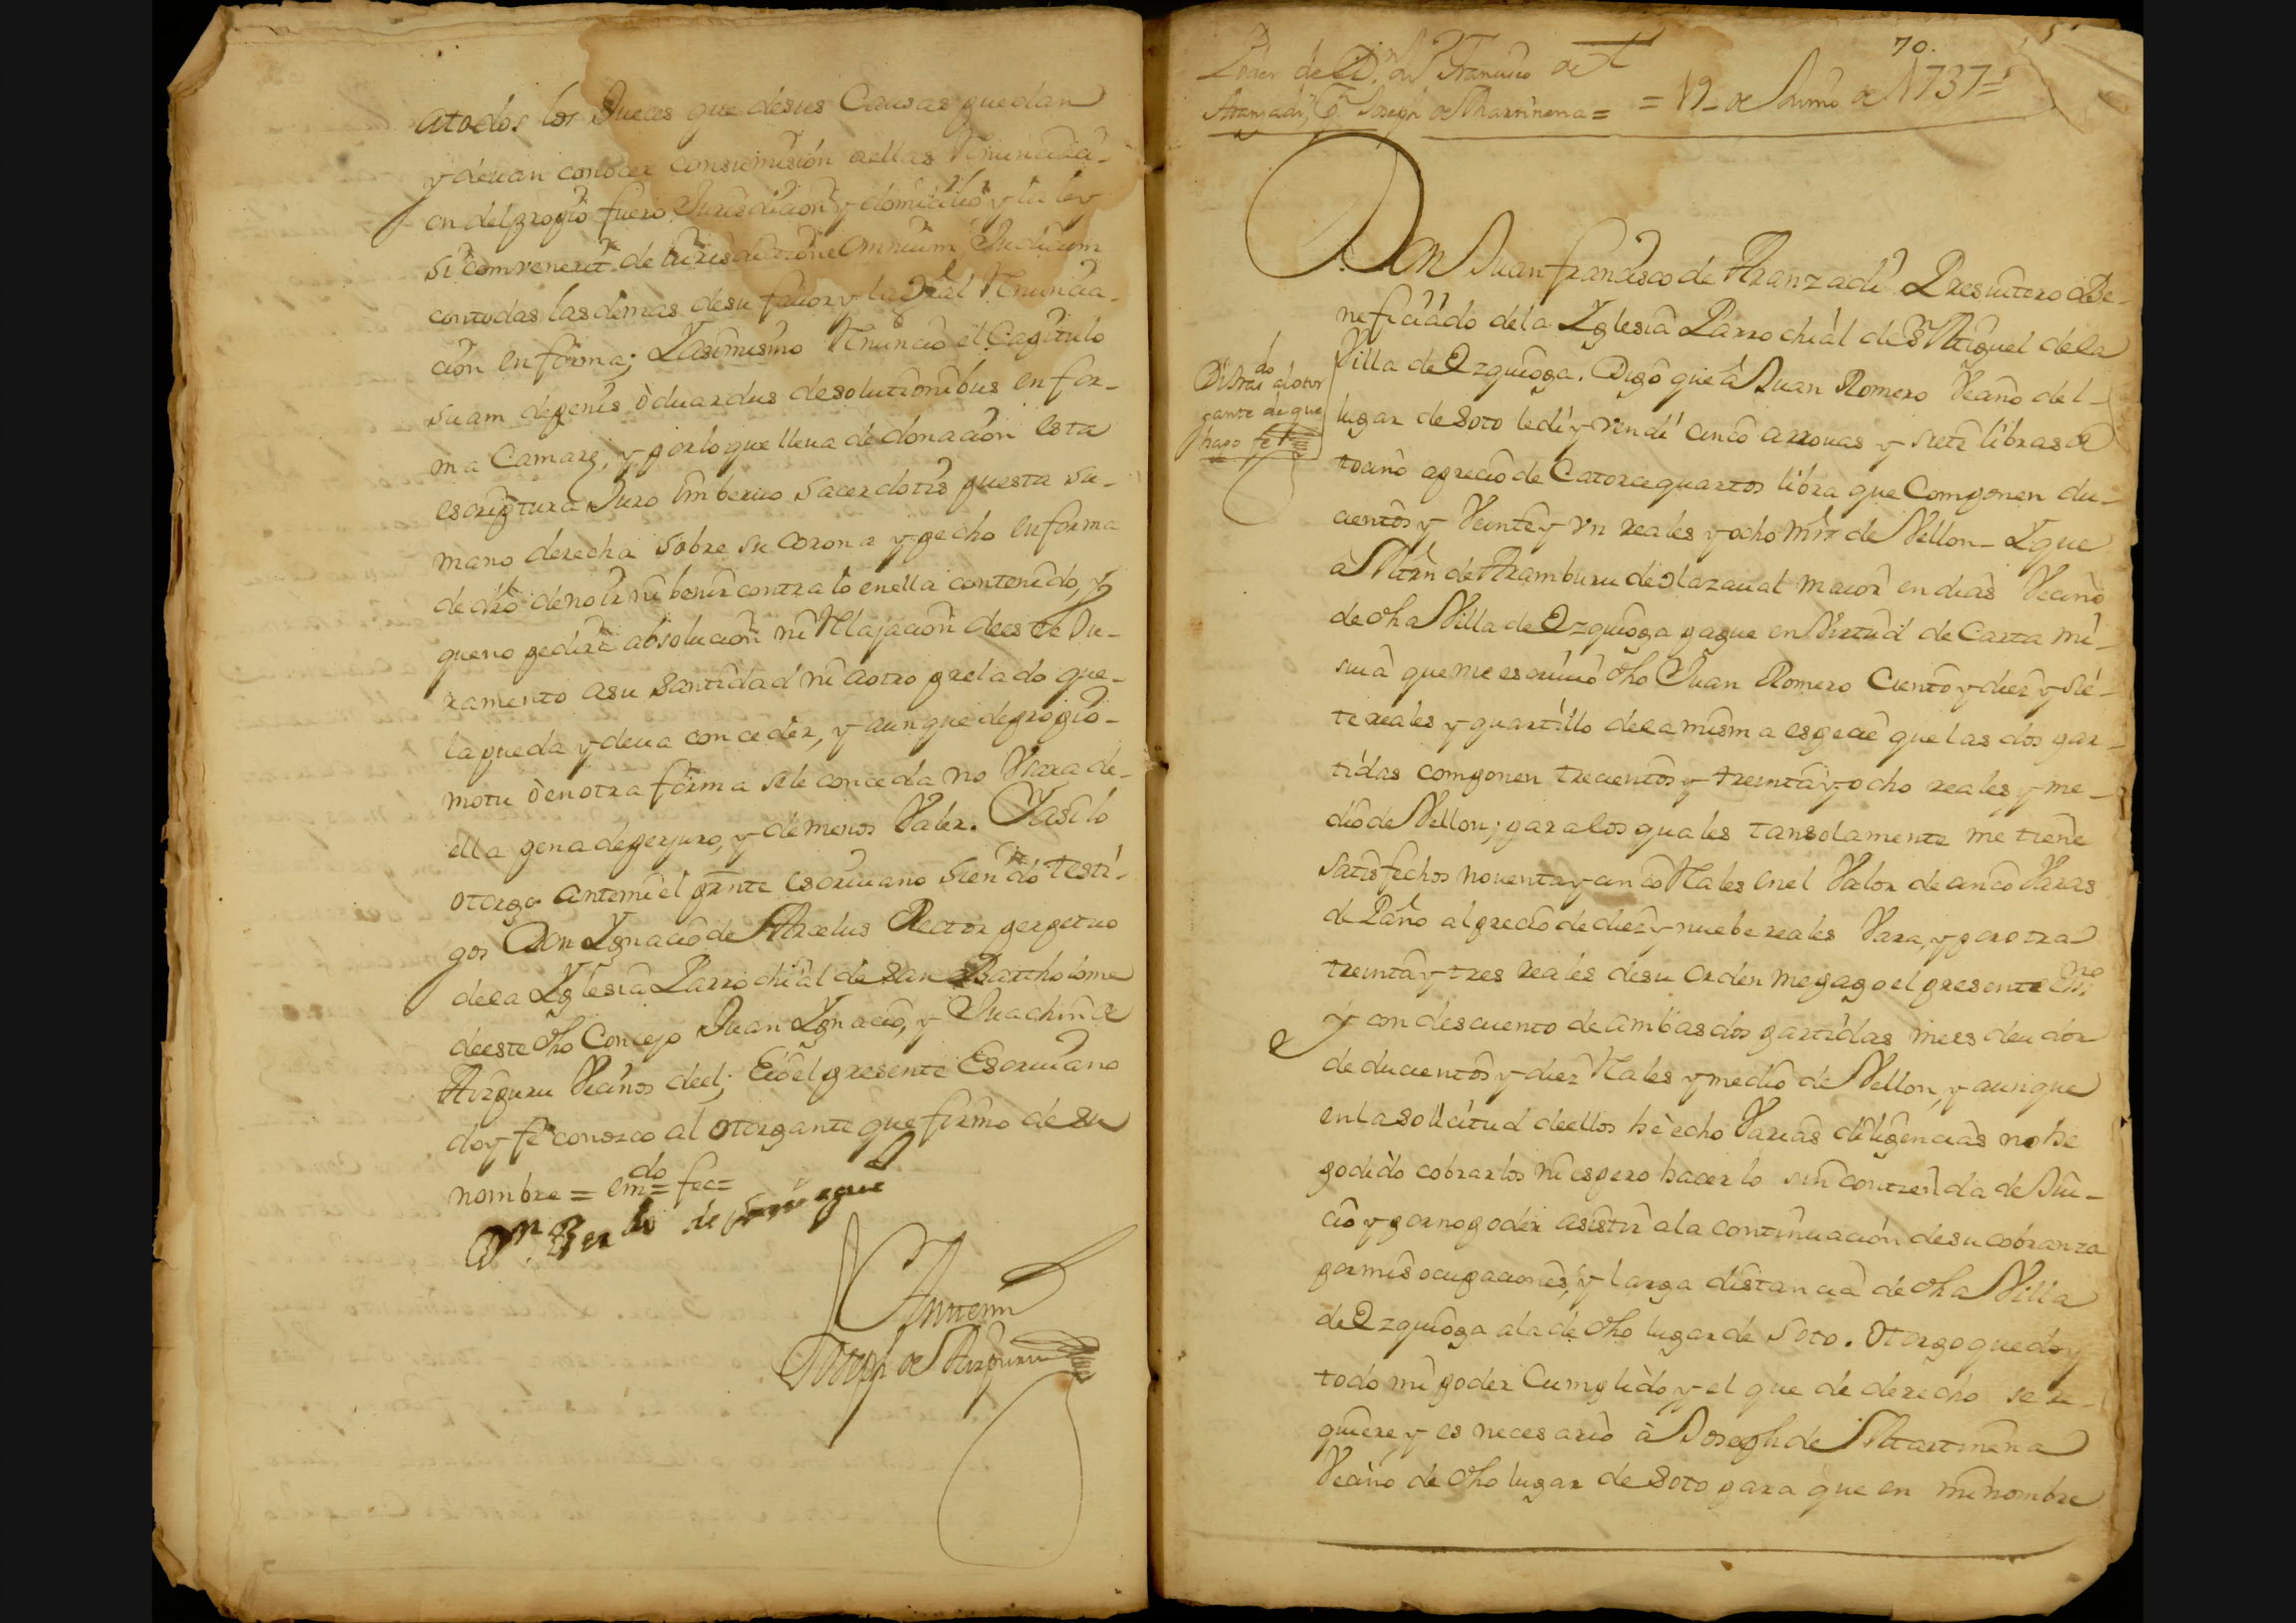 atodos los Jueces que desus Causas puedan
y devan conocer consumisión aellas Renunciazi-
on delpropio fuero Jurisdicion y domicilio y la ley
si convenerit de iurisdictione omnium Judicum
contodas lasdemas desu favor y la Gral Renuncia-
cion en forma; Yasimismo Renuncio el Capitulo
suam depenis òduardus desolutionibus en for-
ma Camare, y porloque lleva de donacion esta
escriptura Juro Imberuo sacerdotis puesta su-
mano derecha sobre su corona y pecho en forma
de dro de no ir ni benir contra lo enella contenido, y
queno pedira absolucion ni Relajacion deeste Ju-
ramento asu santidad ni aotro prelado que-
la pueda y deva conceder, y aunque depropio-
motu ò en otra forma sele conceda no Usara de-
ella pena deperjuro, y demenos Valer. Y asi lo
otorgo antemi el prnte escrivano siendo testi-
gos Don Ygnacio de Arcelus Rector perpetuo
dela Yglesia Parrochial de san Bartholome
deeste dho Concejo Juan Ygnacio, y Juachin de
Aizpuru Vecinos deel; Eio el presente Escrivano
doy fe conozco al otorgante que firmo de su
nombre = emdo = fee =
Dn
Antemi
Joseph de Aizpuru
70.
Poder de Dn Jn Francisco de
Aranzadi, Pa Joseph de Martinena = = 19 - de Junio de 1737 =
Don Juan francisco de Aranzadi Presvitero Be-
neficiado dela Yglesia Parrochial de Sn Miguel dela
Villa de Ezquioga. Digo que à Juan Romero Vecino del-
lugar de Soto ledi y vendi cinco arrovas y siete libras de
tocino apreciode Catorcequartos libra que Componen du-
cientos y Veinte y un reales y ocho mrs de Vellon - Y que
à Mrn de Aramburu de olazaval maior en dias Vecino
de dha Villa de Ezquioga pague en Virtud de Carta mi-
siva que me escrivio dho Juan Romero Ciento y diez y sie-
te reales y quartillo dela misma especie que las dos par-
tidas componen trecientos y treinta y ocho reales y me-
dio de Vellon; paralos quales tansolamente me tiene
satisfechos noventa y cinco Reales en el Valor de cinco Varas
de Paño alprecio de diez y nuebe reales Vara, y por otra
treinta y tres Reales desu orden mepago el presente Essno
y con descuento de ambas dos partidas mees deudor
de ducientos y diez Reales y medio de Vellon, y aunque
enla solicitud deellos hè echo Varias diligencias no he
podido cobrarlos ni espero hacerlo sin contienda de Jui-
cio y por no poder asistir ala continuacion desu cobranza
pormis ocupaciones, y larga distancia de dha Villa
de Ezquioga ala de dho lugar de Soto. Otorgo que doy
todo mi poder Cumplido y el que de derecho se re-
quiere, y es necesario à Joseph de Martinena
Vecino de dho lugar de Soto para que en mi nombre
Di tras do alotor
gante de que
hago fe